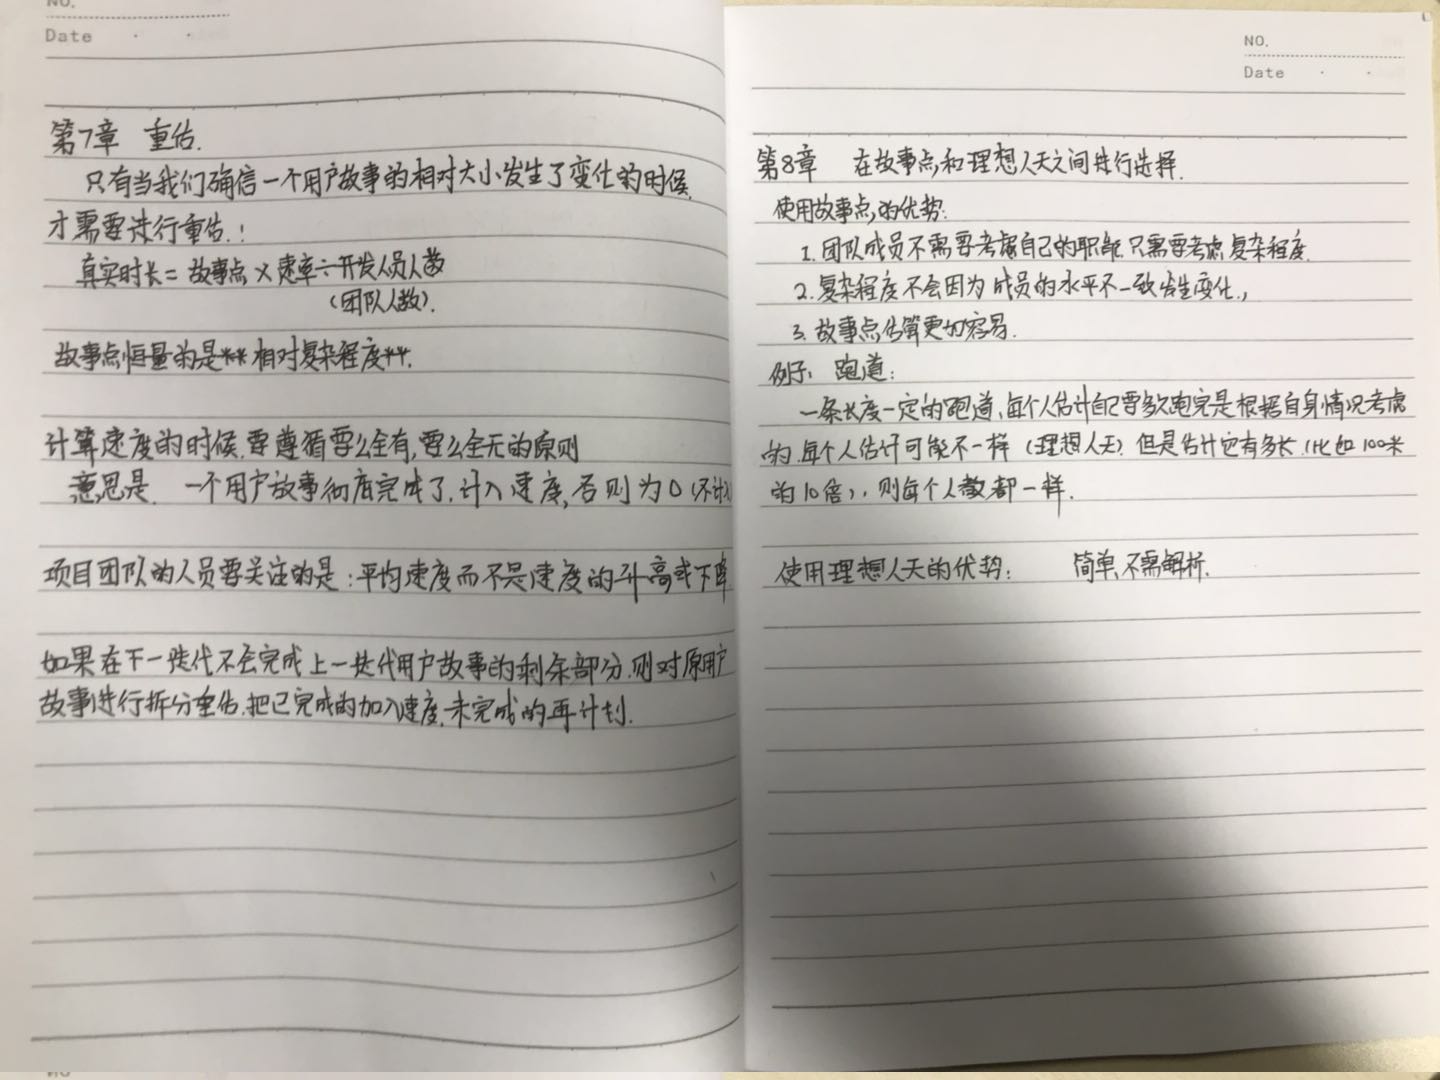 NO.
Date
第7章 重估.
只有当我们确信一个用户故事的相对大小发生了变化的时候,
才需要进行重估.!
真实时长=故事点×速率÷开发人员人数
(团队人数).
故事点恒量的是**相对复杂程度**.
计算速度的时候,要遵循要么全有,要么全无的原则
意思是. 一个用户故事彻底完成了,计入速度,否则为0(不计入)
项目团队的人员要关注的是:平均速度而不是速度的升高或下降
如果在下一迭代不会完成上一迭代用户故事的剩余部分.则对原用户
故事进行拆分重估.把已完成的加入速度,未完成的再计划.
NO.
NO.
Date
第8章 在故事点和理想人天之间进行选择.
使用故事点的优势:
1.团队成员不需要考虑自己的职能,只需要考虑复杂程度.
2.复杂程度不会因为成员的水平不一致发生变化.,
3.故事点估算更加容易.
例子:跑道:
一条长度一定的跑道,每个人估计自己要多久跑完是根据自身情况考虑
的.每个人估计可能不一样(理想人天).但是估计它有多长,(比如100米
的10倍),则每个人教都一样.
使用理想人天的优势: 简单,不需解析.